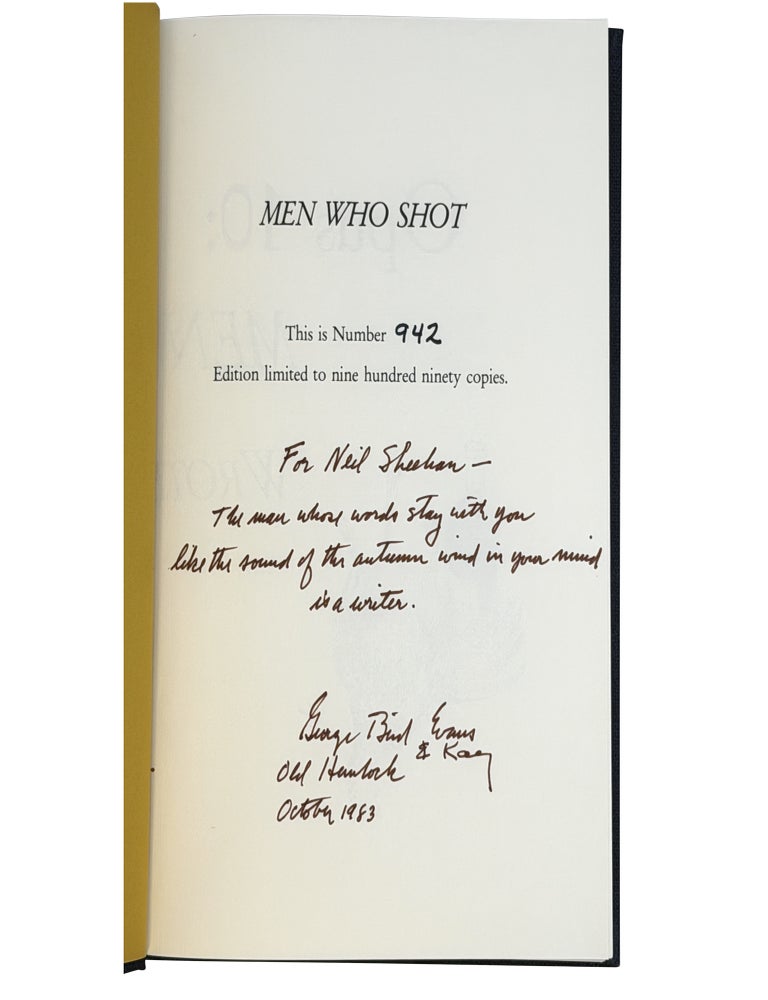 MEN WHO SHOT
This is Number 942
Edition limited to nine hundred ninety copies.
For Neil Sheehan —
The man whose words stay with you
like the sound of the autumn wind in your mind
is a writer.
George Bird Evans
& Kay
Old Hemlock
October 1983
Opus 10:
MEN
WROTE